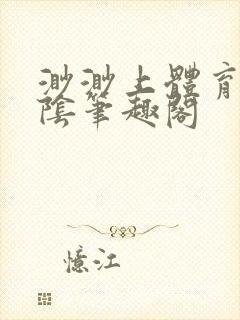 渺渺上體育
陰筆趣閣
憶江